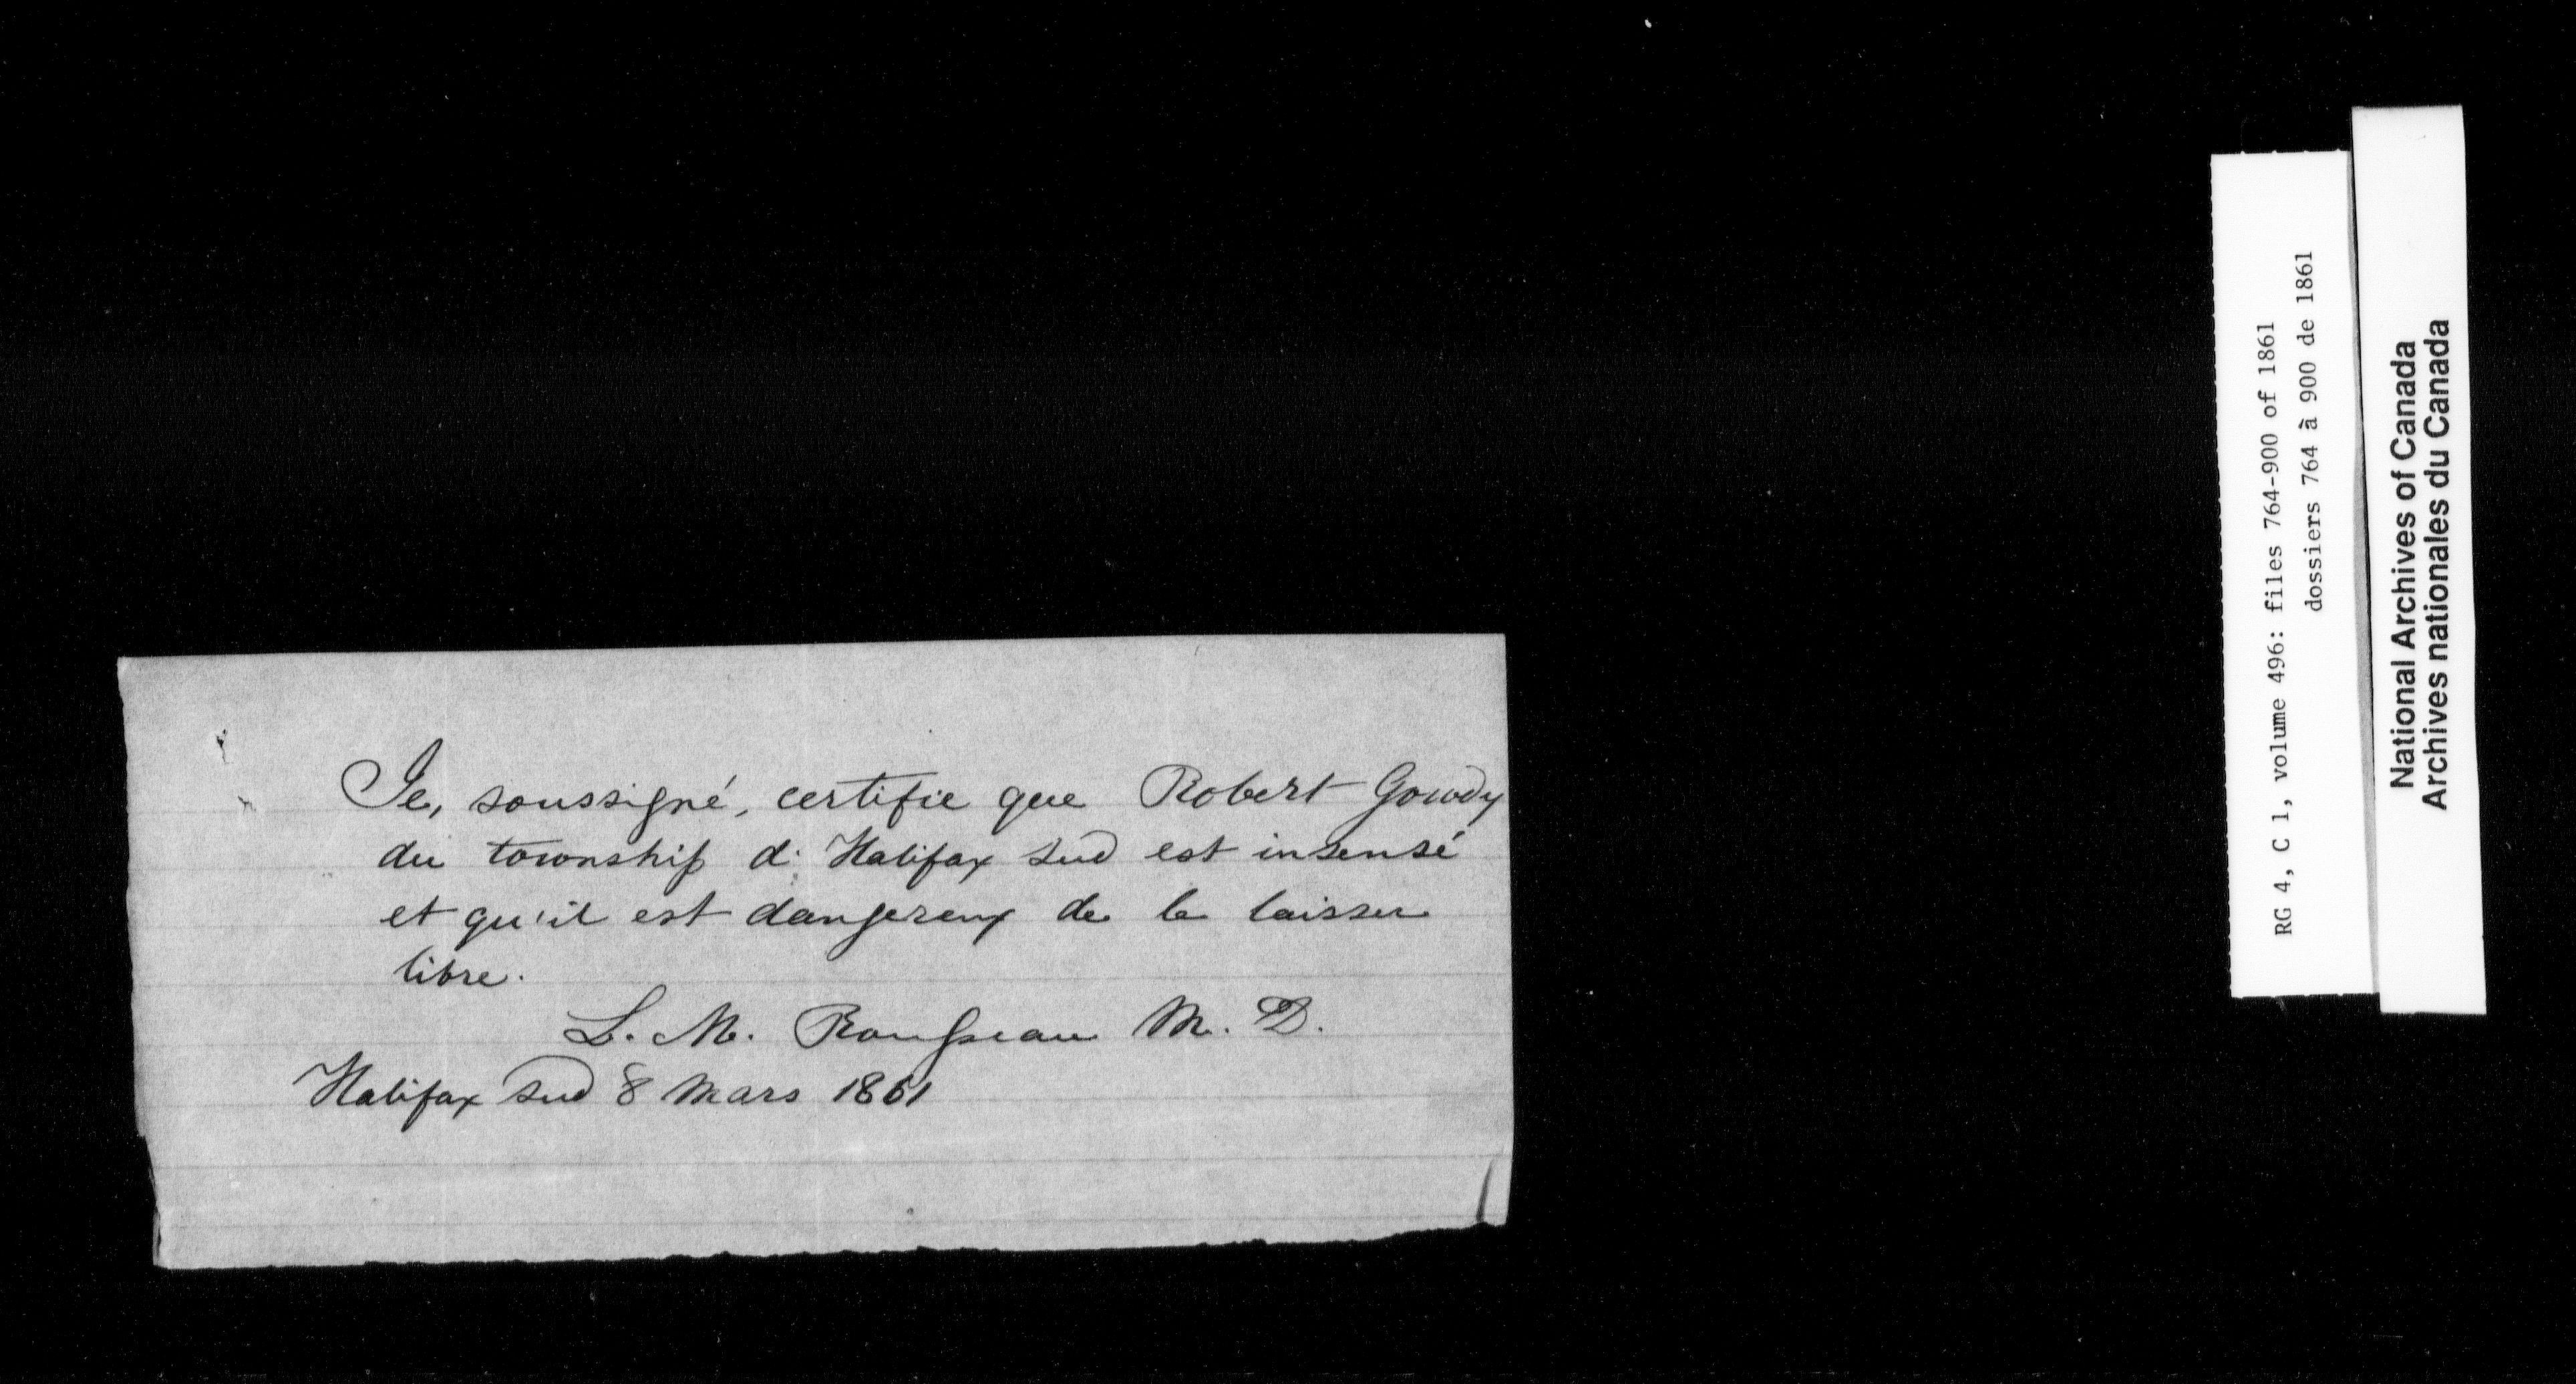 Je, soussigné, certifie que Robert Gowdy
du township d' Halifax Sud est insensé
et qu'il est dangereux de le laisser
libre.
L. M. Rousseau M. D.
Halifax Sud 8 Mars 1861
RG 4, C 1, volume 496: files 764-900 of 1861
dossiers 764 à 900 de 1861
National Archives of Canada
Archives nationales du Canada